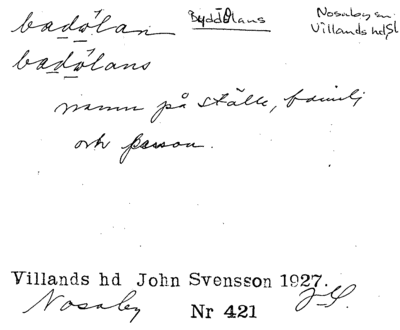 badölan Byddölans Nosaby sn.
Villands hd, Sk
badölans
namn på ställe, familj
och person.
Villands hd John Svensson 1927.
Nosaby Nr 421